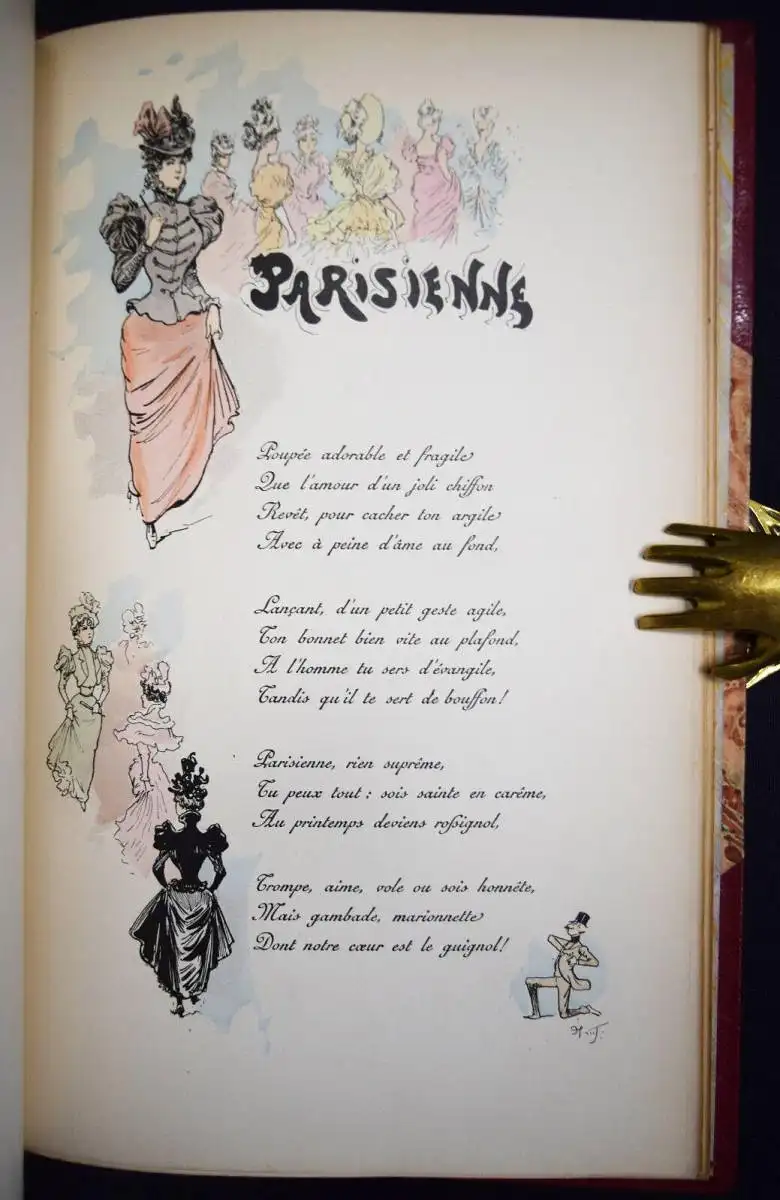 PARISIENNE
Poupée adorable et fragile
Que l'amour d'un joli chiffon
Revêt, pour cacher ton argile
Avec à peine d'âme au fond,
Lançant, d'un petit geste agile,
Ton bonnet bien vite au plafond,
A l'homme tu sers d'évangile,
Tandis qu'il te sert de bouffon!
Parisienne, rien suprême,
Tu peux tout : sois sainte en carême,
Au printemps deviens roſsignol,
Trompe, aime, vole ou sois honnête,
Mais gambade, marionnette
Dont notre cœur est le guignol!